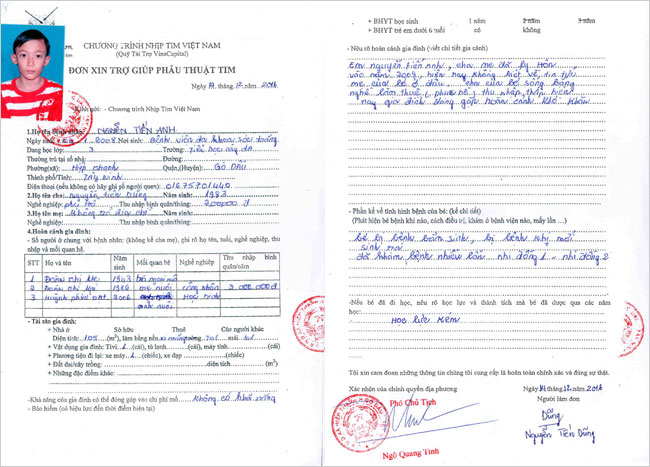 CHƯƠNG TRÌNH NHỊP TIM VIỆT NAM
(Quỹ Tài Trợ VinaCapital)
ĐƠN XIN TRỢ GIÚP PHẪU THUẬT TIM
Ngày 12 năm 2016
Kính gởi: - Chương trình Nhịp Tim Việt Nam
1.Họ NGUYỄN TIẾN ANH
Ngày sinh: 1 2008 Nơi sinh: Bệnh viện đa khoa
Đang học lớp: 3 Trường: Tiểu học
Thường trú tại số nhà: Đường:
Phường(xã): Hiệp Thạnh Quận,(Huyện): Gò Dầu
Thành phố/Tỉnh: Tây Ninh
Điện thoại (nếu không có hãy ghi số người quen): 01675701440
2.Họ tên cha: Nguyễn Tiến Dũng Năm sinh: 1983
Nghề nghiệp: phụ hồ Thu nhập bình quân/tháng:
3.Họ tên mẹ: không rõ địa chỉ Năm sinh:
Nghề nghiệp: Thu nhập bình quân/tháng:
4.Hoàn cảnh gia đình:
- Số người ở chung với bệnh nhân: (không kể cha, mẹ), ghi rõ họ tên, tuổi, nghề nghiệp, thu nhập và mối quan hệ.
STT Họ và tên Năm sinh Mối quan hệ Nghề nghiệp Thu nhập bình quân/năm
1 Đoàn Thị 1943
2 Đoàn Thị 1986 mẹ nuôi công nhân 3.000.000đ
3 Huỳnh 2006 Học sinh
- Tài sản gia đình:
+ Nhà ở Sở hữu Thuê Của người khác
Diện tích: 105 (m²), làm bằng nền xi măng tường mái
+ Vật dụng gia đình: Tivi 1 (cái), tủ lạnh (cái), máy tính (cái)
+ Phương tiện đi lại: xe máy 1 (chiếc), xe đạp (chiếc)
+ Đất đai/cây trồng: diện tích (m²)
+ Những đặc điểm khác:
-Khả năng của gia đình có thể đóng góp vào chi phí mổ: không có khả năng
- Bảo hiểm (có hiệu lực đến thời điểm hiện tại)
+ BHYT học sinh 1 năm 2 năm 3 năm
+ BHYT trẻ em dưới 6 tuổi có không
- Nêu rõ hoàn cảnh gia đình (viết chi tiết gia cảnh)
Em Nguyễn Tiến Anh, cha mẹ đã ly hôn
vào năm 2009, hiện nay không biết về tin tức
mẹ của bé ở đâu, cha của bé sống bằng
nghề làm thuê (phụ hồ), thu nhập thấp hiện
nay gia đình đang gặp hoàn cảnh khó khăn
- Phần kể về tình hình bệnh của bé: (kể chi tiết)
(Phát hiện bé bệnh khi nào, cách điều trị, khám ở bệnh viện nào, mấy lần …)
bé bị bệnh bẩm sinh, bị bệnh khi mới
sinh ra
đã khám bệnh nhiều lần nhi đồng 1 - nhi đồng 2
-Nếu bé đã đi học, nêu rõ học lực và thành tích mà bé đã được qua các năm học:
Học lực kém
Tôi xin cam đoan những thông tin chúng tôi cung cấp là hoàn toàn chính xác và đúng sự thật.
Xác nhận của chính quyền địa phương
Ngày 12 năm 2016
Người làm đơn
Phó Chủ Tịch
Ngô Quang Tinh
Dũng
Nguyễn Tiến Dũng